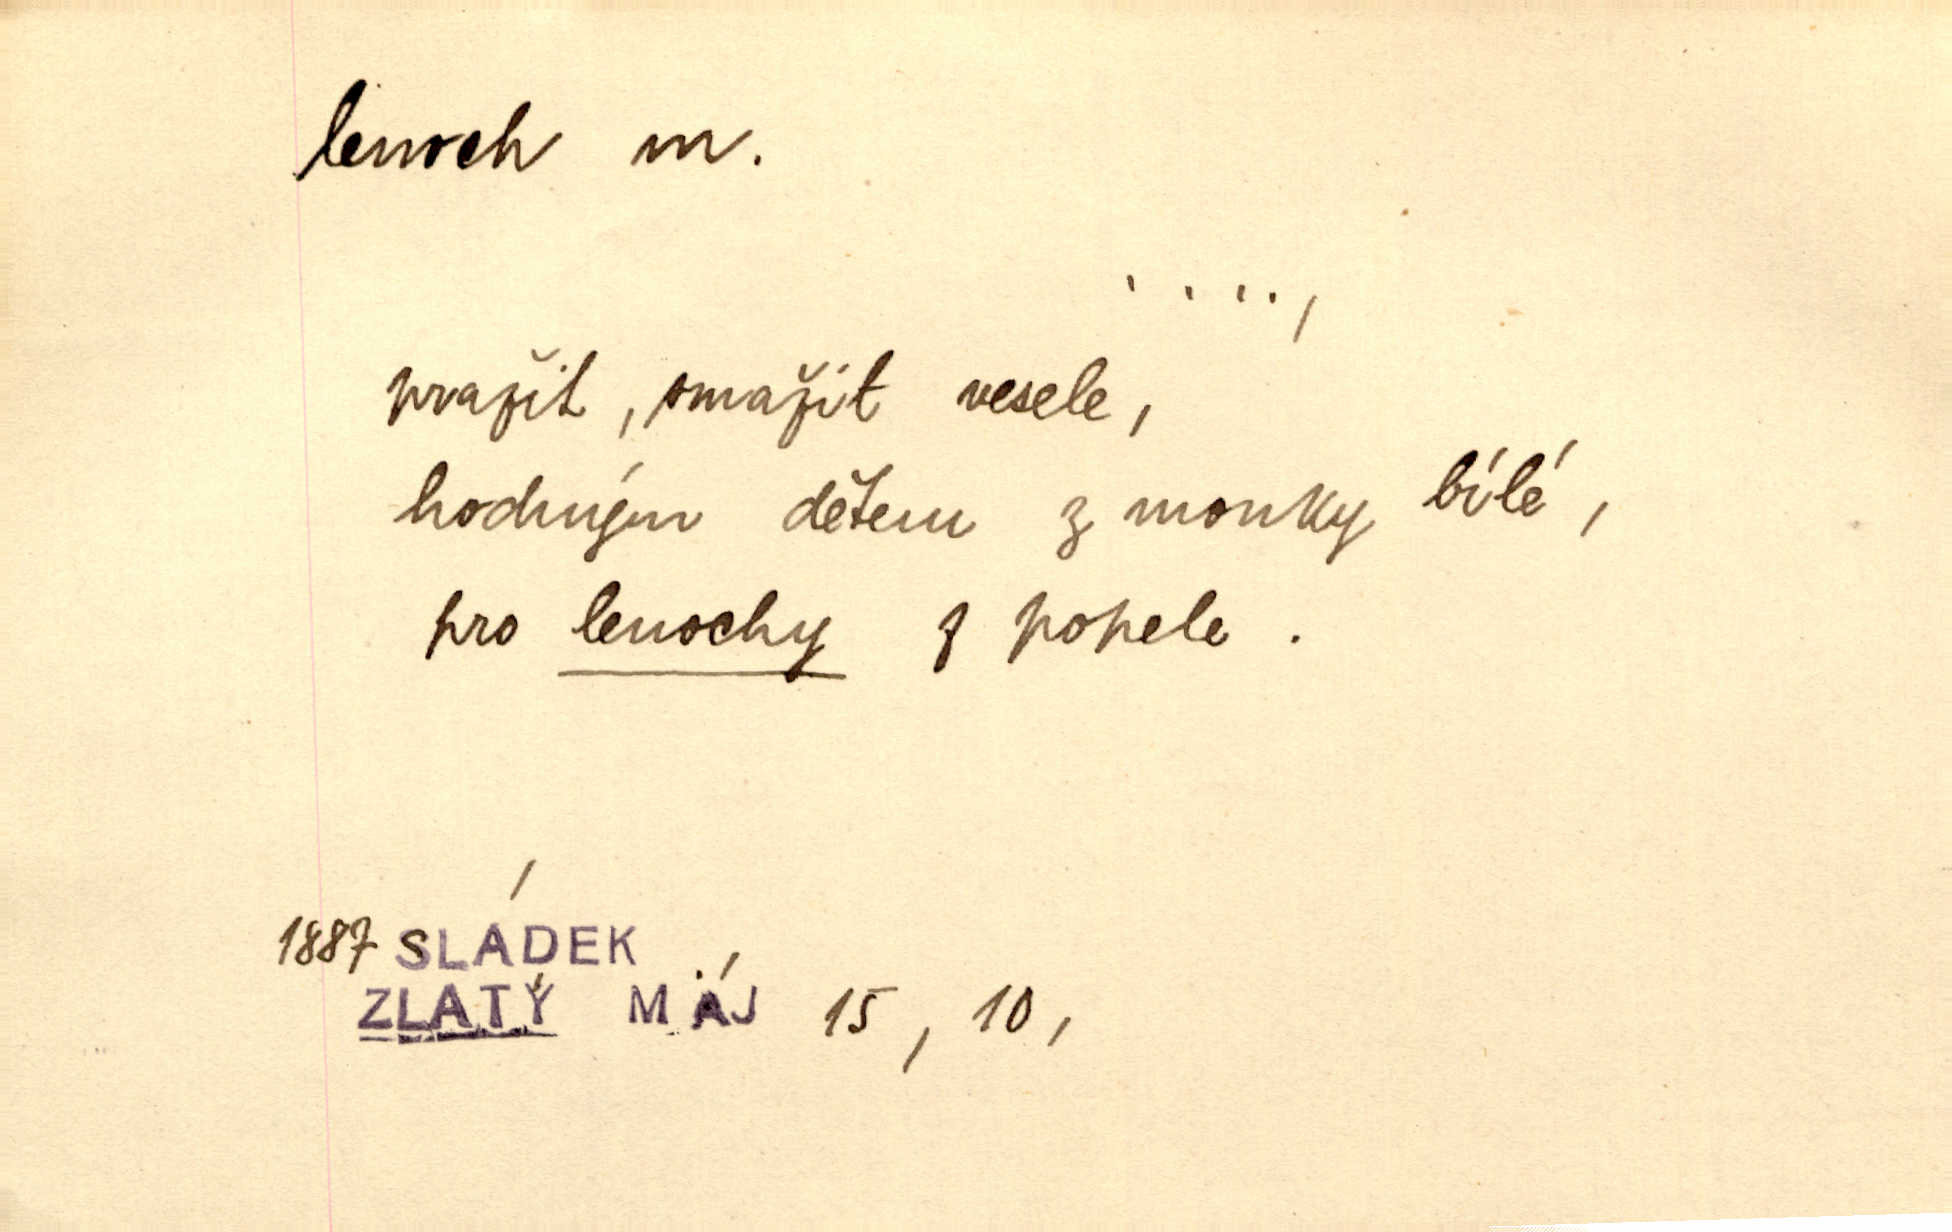 lenoch m.
. . . . ,
pražit, smažit vesele,
hodným dětem z mouky bílé,
pro lenochy z popele .
1887 SLÁDEK
ZLATÝ MÁJ 15, 10,